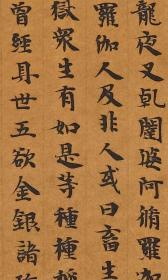 龍夜叉乹闥婆阿脩羅
羅伽人及非人或曰畜生
獄衆生有如是等種種
曾經具世五欲金銀諸